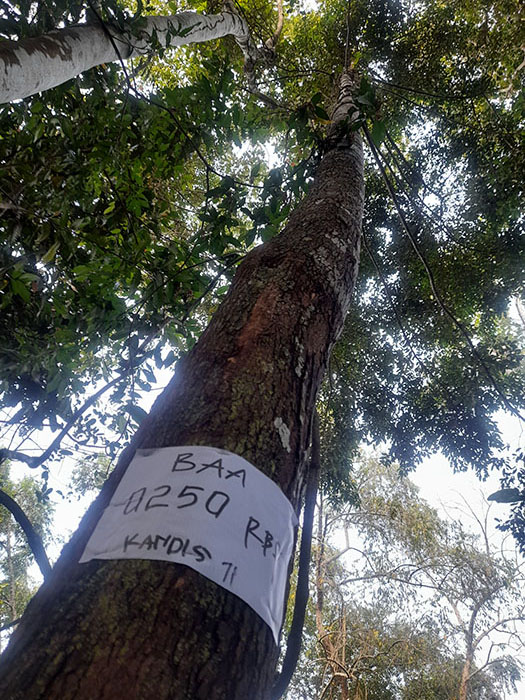 BAA
0250 RBS
KANDIS 71